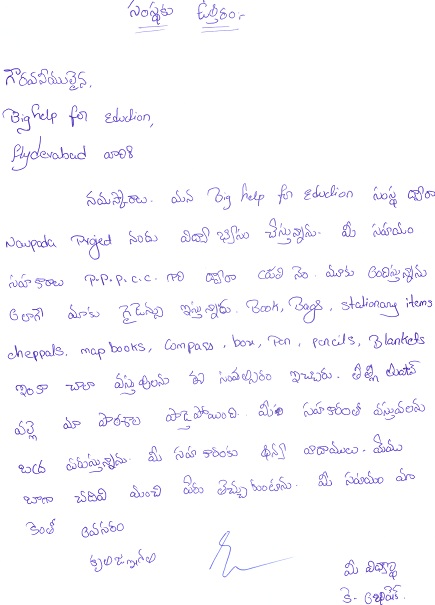 సంస్థకు ఉత్తరం.
గౌరవనీయులైన,
Big help for Eduction,
Hyderabad వారికి
నమస్కారాలు. మన Big help for Eduction సంస్థ ద్వారా
Naupada Project నందు విద్యా చేస్తున్నాను. మీ సహాయం
సహకారాలు P.P.P.C.C. గారి ద్వారా మాకు అందిస్తున్నారు
అలాగే మాకు గైడెన్సు ఇస్తున్నారు. Book, Bags, stationary items
cheppals, map books, compass, box, Pen, pencils, Blankets
ఇంకా చాలా వస్తువులను ఈ సంవత్సరం ఇచ్చారు.
వల్ల మా పాఠశాల మీరు సహకారంతో వస్తువులను
మీ సహకారంకు ధన్యవాదాములు. మేము
బాగా చదివి మంచి పేరు తెచ్చుకుంటాను. మీ సహాయం మా
కెంతో అవసరం
కృతజ్ఞతలు
మీ విద్యార్థి
కె.